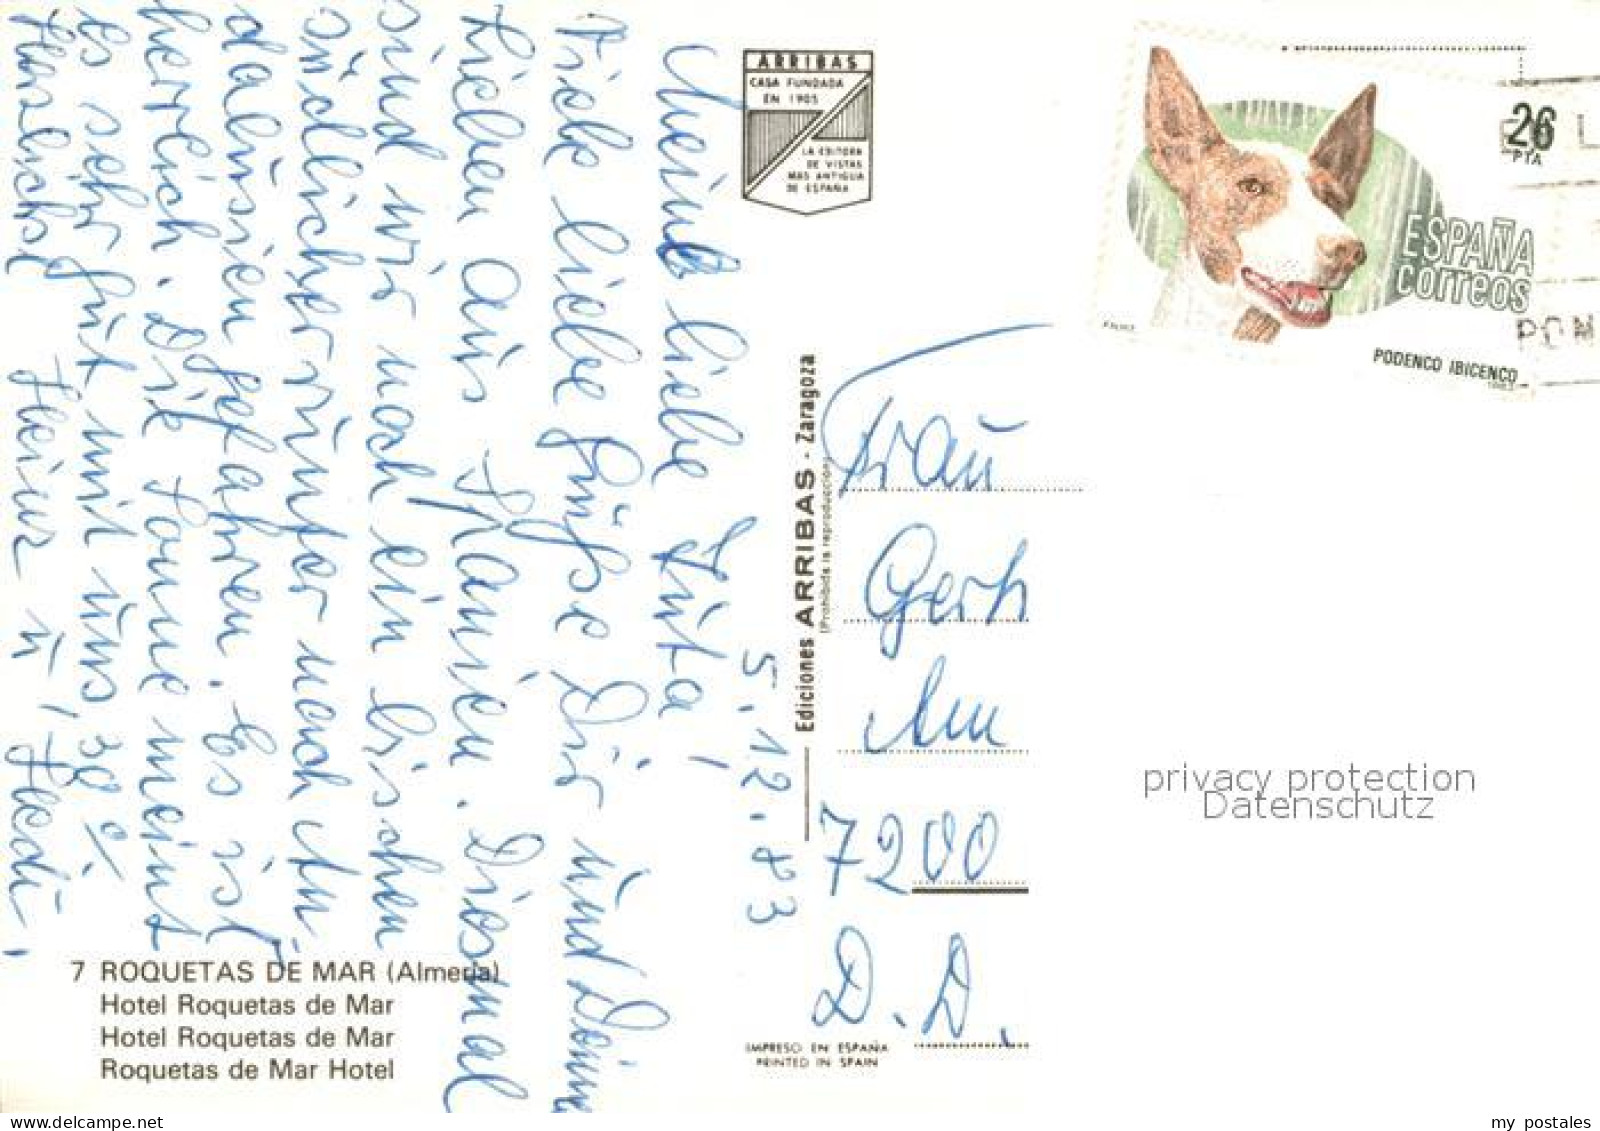 5.12.83
Meine liebe Juta!
Viele liebe Grüße Dir und Deinen
Lieben aus Spanien. Diesmal
sind wir noch ein bischen
südlicher runter nach An-
dalusien gefahren. Es ist
herrlich. Die Sonne meint
es sehr gut mit uns 30°
Herzlichst Heinz u. Hedi.
7 ROQUETAS DE MAR (Almería)
Hotel Roquetas de Mar
Hotel Roquetas de Mar
Roquetas de Mar Hotel
ARRIBAS
CASA FUNDADA
EN 1905
LA EDITORA
DE VISTAS
MAS ANTIGUA
DE ESPAÑA
Ediciones ARRIBAS - Zaragoza
(Prohibida la reproducción)
IMPRESO EN ESPAÑA
PRINTED IN SPAIN
26
PTA
ESPAÑA
correos
PODENCO IBICENCO
1983
Frau
Gerh
Am
7200
privacy protection
Datenschutz
my postales